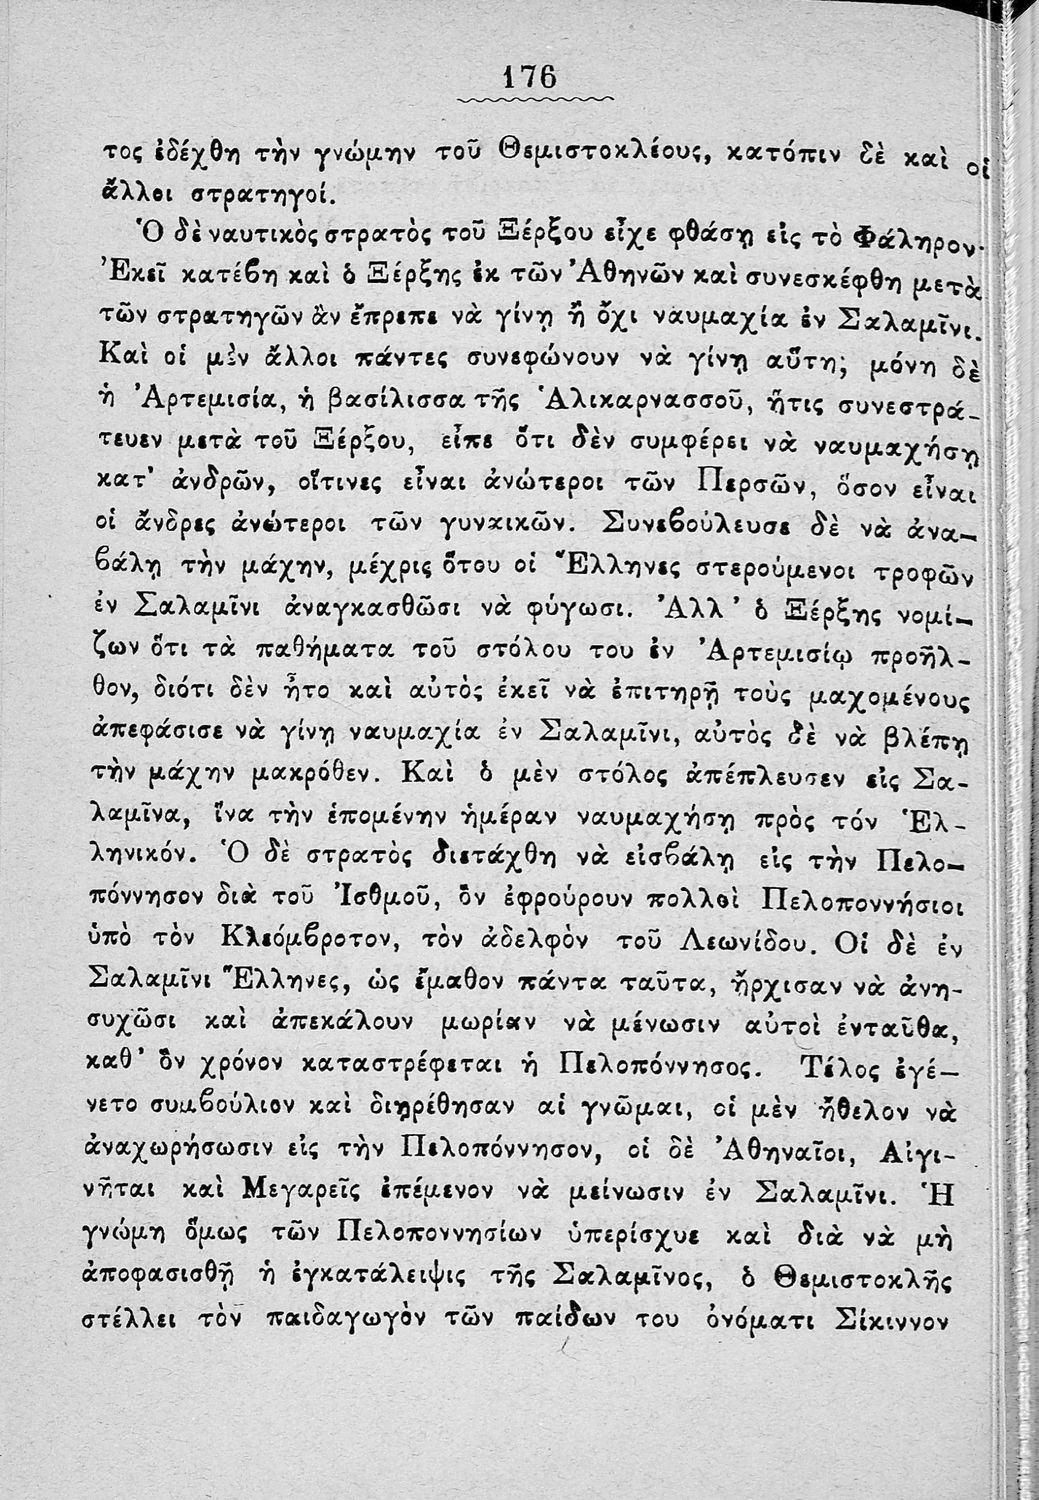 176
τος ἐδέχθη τὴν γνώμην τοῦ Θεμιστοκλέους, κατόπιν δὲ καὶ οἱ
ἄλλοι στρατηγοί.
Ὁ δὲ ναυτικὸς στρατὸς τοῦ Ξέρξου εἶχε φθάσῃ εἰς τὸ Φάληρον·
Ἐκεῖ κατέβη καὶ ὁ Ξέρξης ἐκ τῶν Ἀθηνῶν καὶ συνεσκέφθη μετὰ
τῶν στρατηγῶν ἂν ἔπρεπε νὰ γίνῃ ἢ ὄχι ναυμαχία ἐν Σαλαμῖνι.
Καὶ οἱ μὲν ἄλλοι πάντες συνεφώνουν νὰ γίνῃ αὕτη; μόνη δὲ
ἡ Ἀρτεμισία, ἡ βασίλισσα τῆς Ἁλικαρνασσοῦ, ἥτις συνεστρά-
τευεν μετὰ τοῦ Ξέρξου, εἶπε ὅτι δὲν συμφέρει νὰ ναυμαχήσῃ
κατ’ ἀνδρῶν, οἵτινες εἶναι ἀνώτεροι τῶν Περσῶν, ὅσον εἶναι
οἱ ἄνδρες ἀνώτεροι τῶν γυναικῶν. Συνεβούλευσε δὲ νὰ ἀνα-
βάλῃ τὴν μάχην, μέχρις ὅτου οἱ Ἕλληνες στερούμενοι τροφῶν
ἐν Σαλαμῖνι ἀναγκασθῶσι νὰ φύγωσι. Ἀλλ’ ὁ Ξέρξης νομί-
ζων ὅτι τὰ παθήματα τοῦ στόλου του ἐν Ἀρτεμισίῳ προῆλ-
θον, διότι δὲν ἦτο καὶ αὐτὸς ἐκεῖ νὰ ἐπιτηρῇ τοὺς μαχομένους
ἀπεφάσισε νὰ γίνῃ ναυμαχία ἐν Σαλαμῖνι, αὐτὸς δὲ νὰ βλέπῃ
τὴν μάχην μακρόθεν. Καὶ ὁ μὲν στόλος ἀπέπλευσεν εἰς Σα-
λαμῖνα, ἵνα τὴν ἑπομένην ἡμέραν ναυμαχήσῃ πρὸς τόν Ἑλ-
ληνικόν. Ὁ δὲ στρατὸς διετάχθη νὰ εἰσβάλῃ εἰς τὴν Πελο-
πόννησον διὰ τοῦ Ἰσθμοῦ, ὃν ἐφρούρουν πολλοὶ Πελοποννήσιοι
ὑπὸ τὸν Κλεόμβροτον, τὸν ἀδελφὸν τοῦ Λεωνίδου. Οἱ δὲ ἐν
Σαλαμῖνι Ἕλληνες, ὡς ἔμαθον πάντα ταῦτα, ἤρχισαν νὰ ἀνη-
συχῶσι καὶ ἀπεκάλουν μωρίαν νὰ μένωσιν αὐτοὶ ἐνταῦθα,
καθ’ ὃν χρόνον καταστρέφεται ἡ Πελοπόννησος. Τέλος ἐγέ-
νετο συμβούλιον καὶ διῃρέθησαν αἱ γνῶμαι, οἱ μὲν ἤθελον νὰ
ἀναχωρήσωσιν εἰς τὴν Πελοπόννησον, οἱ δὲ Ἀθηναῖοι, Αἰγι-
νῆται καὶ Μεγαρεῖς ἐπέμενον νὰ μείνωσιν ἐν Σαλαμῖνι. Ἡ
γνώμη ὅμως τῶν Πελοποννησίων ὑπερίσχυε καὶ διὰ νὰ μὴ
ἀποφασισθῇ ἡ ἐγκατάλειψις τῆς Σαλαμῖνος, ὁ Θεμιστοκλῆς
στέλλει τὸν παιδαγωγὸν τῶν παίδων του ὀνόματι Σίκιννον